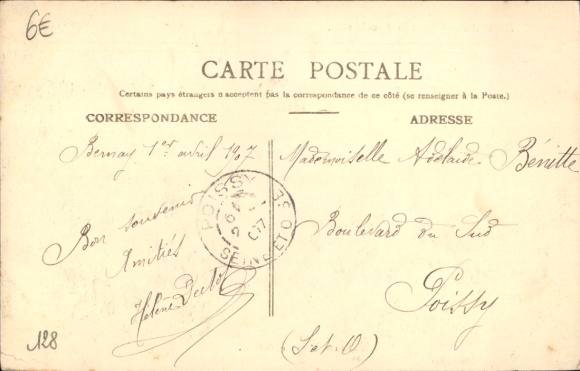 6€
CARTE POSTALE
Certains pays étrangers n'acceptent pas la correspondance de ce côté (se renseigner à la Poste.)
CORRESPONDANCE
ADRESSE
Bernay 1er avril 1907
Bon souvenir
Amitiés
Hélène
128
POISSY
SEINE ET OISE
Mademoiselle Adelaïde Bénitte
Boulevard du Sud
Poissy
(S. et. O)